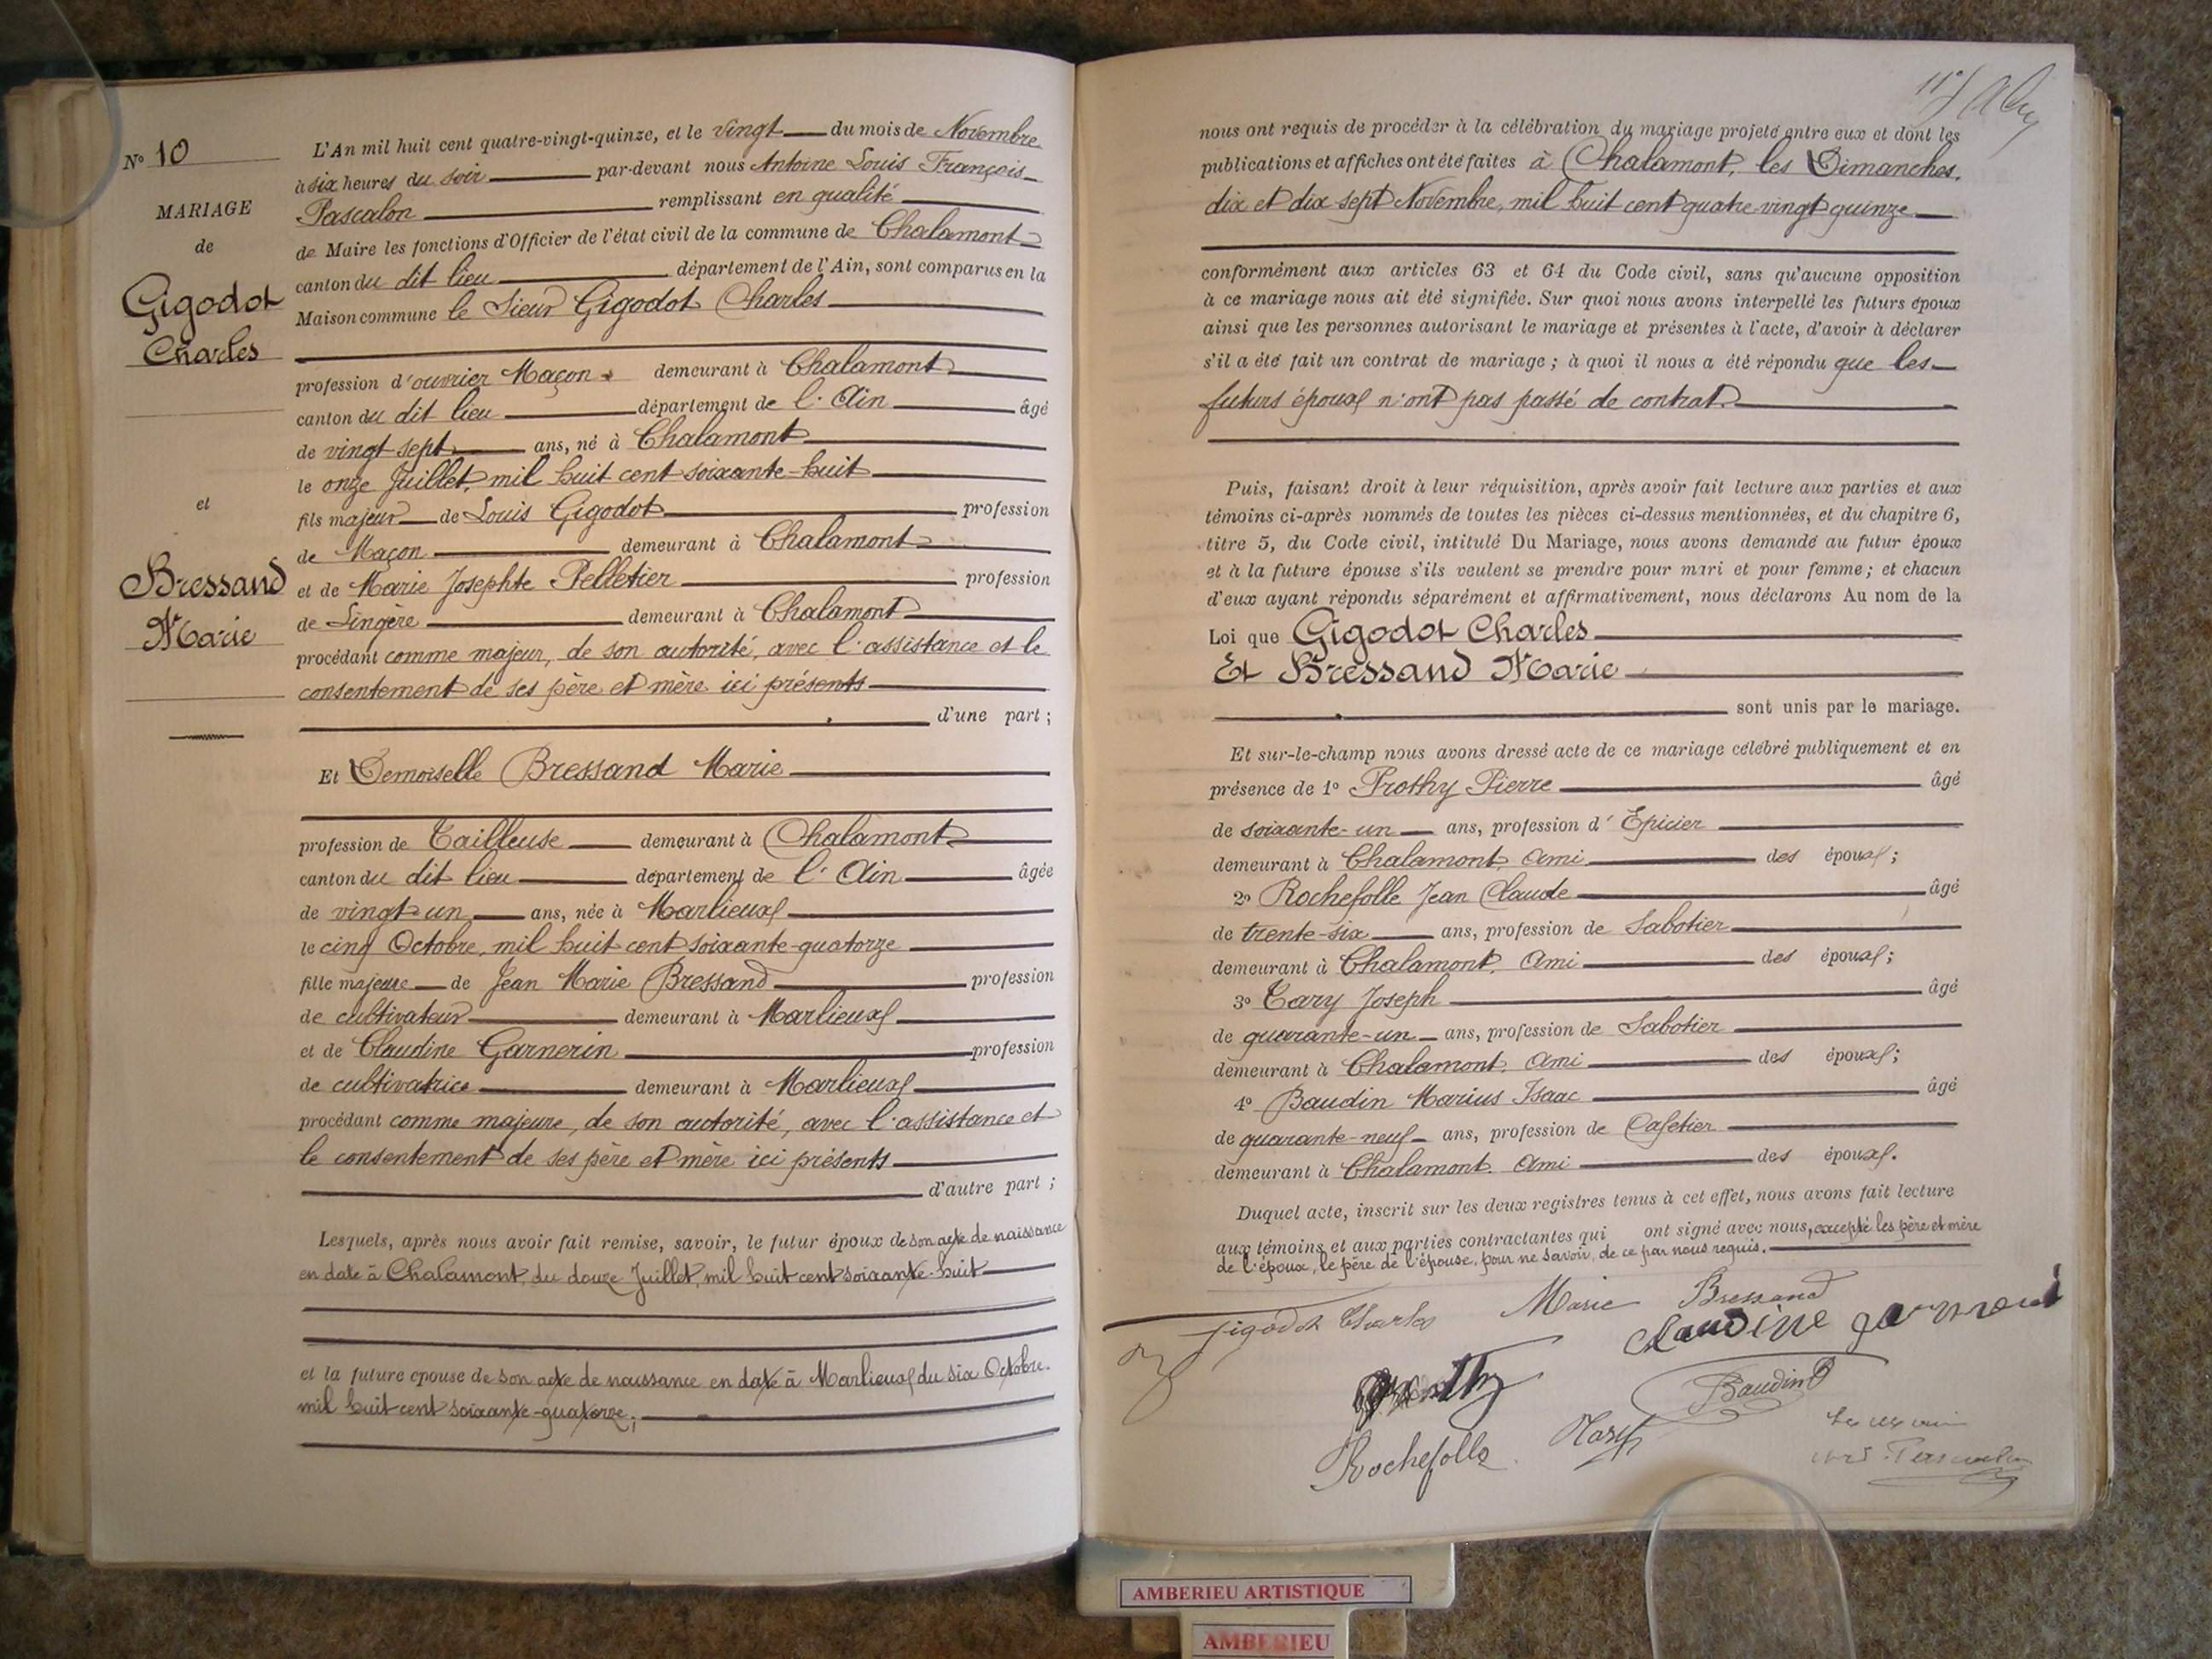 N° 10
MARIAGE
de
Gigodot
Charles
et
Bressand
Marie
L'An mil huit cent quatre-vingt-quinze, et le vingt du mois de Novembre
à six heures du soir par-devant nous Antoine Louis François
Pascalon remplissant en qualité
de Maire les fonctions d'Officier de l'état civil de la commune de Chalamont
canton du dit lieu département de l'Ain, sont comparus en la
Maison commune le Sieur Gigodot Charles
profession d'ouvrier Maçon demeurant à Chalamont
canton du dit lieu département de l'Ain âgé
de vingt sept ans, né à Chalamont
le onze Juillet, mil huit cent soixante-huit
fils majeur de Louis Gigodot profession
de Maçon demeurant à Chalamont
et de Marie Josephte Pelletier profession
de Lingère demeurant à Chalamont
procédant comme majeur, de son autorité, avec l'assistance et le
consentement de ses père et mère ici présents
d'une part ;
Et Demoiselle Bressand Marie
profession de Tailleuse demeurant à Chalamont
canton du dit lieu département de l'Ain âgée
de vingt-un ans, née à Marlieux
le cinq Octobre, mil huit cent soixante-quatorze
fille majeure de Jean Marie Bressand profession
de cultivateur demeurant à Marlieux
et de Claudine Garnerin profession
de cultivatrice demeurant à Marlieux
procédant comme majeure, de son autorité, avec l'assistance et
le consentement de ses père et mère ici présents
d'autre part ;
Lesquels, après nous avoir fait remise, savoir, le futur époux de son acte de naissance
en date à Chalamont, du douze Juillet, mil huit cent soixante-huit
et la future épouse de son acte de naissance en date à Marlieux du six Octobre
mil huit cent soixante-quatorze;
nous ont requis de procéder à la célébration du mariage projeté entre eux et dont les
publications et affiches ont été faites à Chalamont, les Dimanches,
dix et dix-sept Novembre, mil huit cent quatre vingt quinze
conformément aux articles 63 et 64 du Code civil, sans qu'aucune opposition
à ce mariage nous ait été signifiée. Sur quoi nous avons interpellé les futurs époux
ainsi que les personnes autorisant le mariage et présentes à l'acte, d'avoir à déclarer
s'il a été fait un contrat de mariage ; à quoi il nous a été répondu que les
futurs époux n'ont pas passé de contrat.
Puis, faisant droit à leur réquisition, après avoir fait lecture aux parties et aux
témoins ci-après nommés de toutes les pièces ci-dessus mentionnées, et du chapitre 6,
titre 5, du Code civil, intitulé Du Mariage, nous avons demandé au futur époux
et à la future épouse s'ils veulent se prendre pour mari et pour femme ; et chacun
d'eux ayant répondu séparément et affirmativement, nous déclarons Au nom de la
Loi que Gigodot Charles
Et Bressand Marie
sont unis par le mariage.
Et sur-le-champ nous avons dressé acte de ce mariage célébré publiquement et en
présence de 1° Prothy Pierre âgé
de soixante-un ans, profession d'Epicier
demeurant à Chalamont, ami des époux ;
2° Rochefolle Jean Claude âgé
de trente-six ans, profession de Sabotier
demeurant à Chalamont, ami des époux ;
3° Tary Joseph âgé
de quarante-un ans, profession de Sabotier
demeurant à Chalamont, ami des époux ;
4° Baudin Marius Isaac âgé
de quarante-neuf ans, profession de Cafetier
demeurant à Chalamont. ami des époux.
Duquel acte, inscrit sur les deux registres tenus à cet effet, nous avons fait lecture
aux témoins et aux parties contractantes qui ont signé avec nous, excepté les père et mère
de l'époux, le père de l'épouse, pour ne savoir, de ce par nous requis.
gigodot Charles Marie Bressand
Claudine
Baudin
Rochefolle
AMBERIEU ARTISTIQUE
AMBERIEU